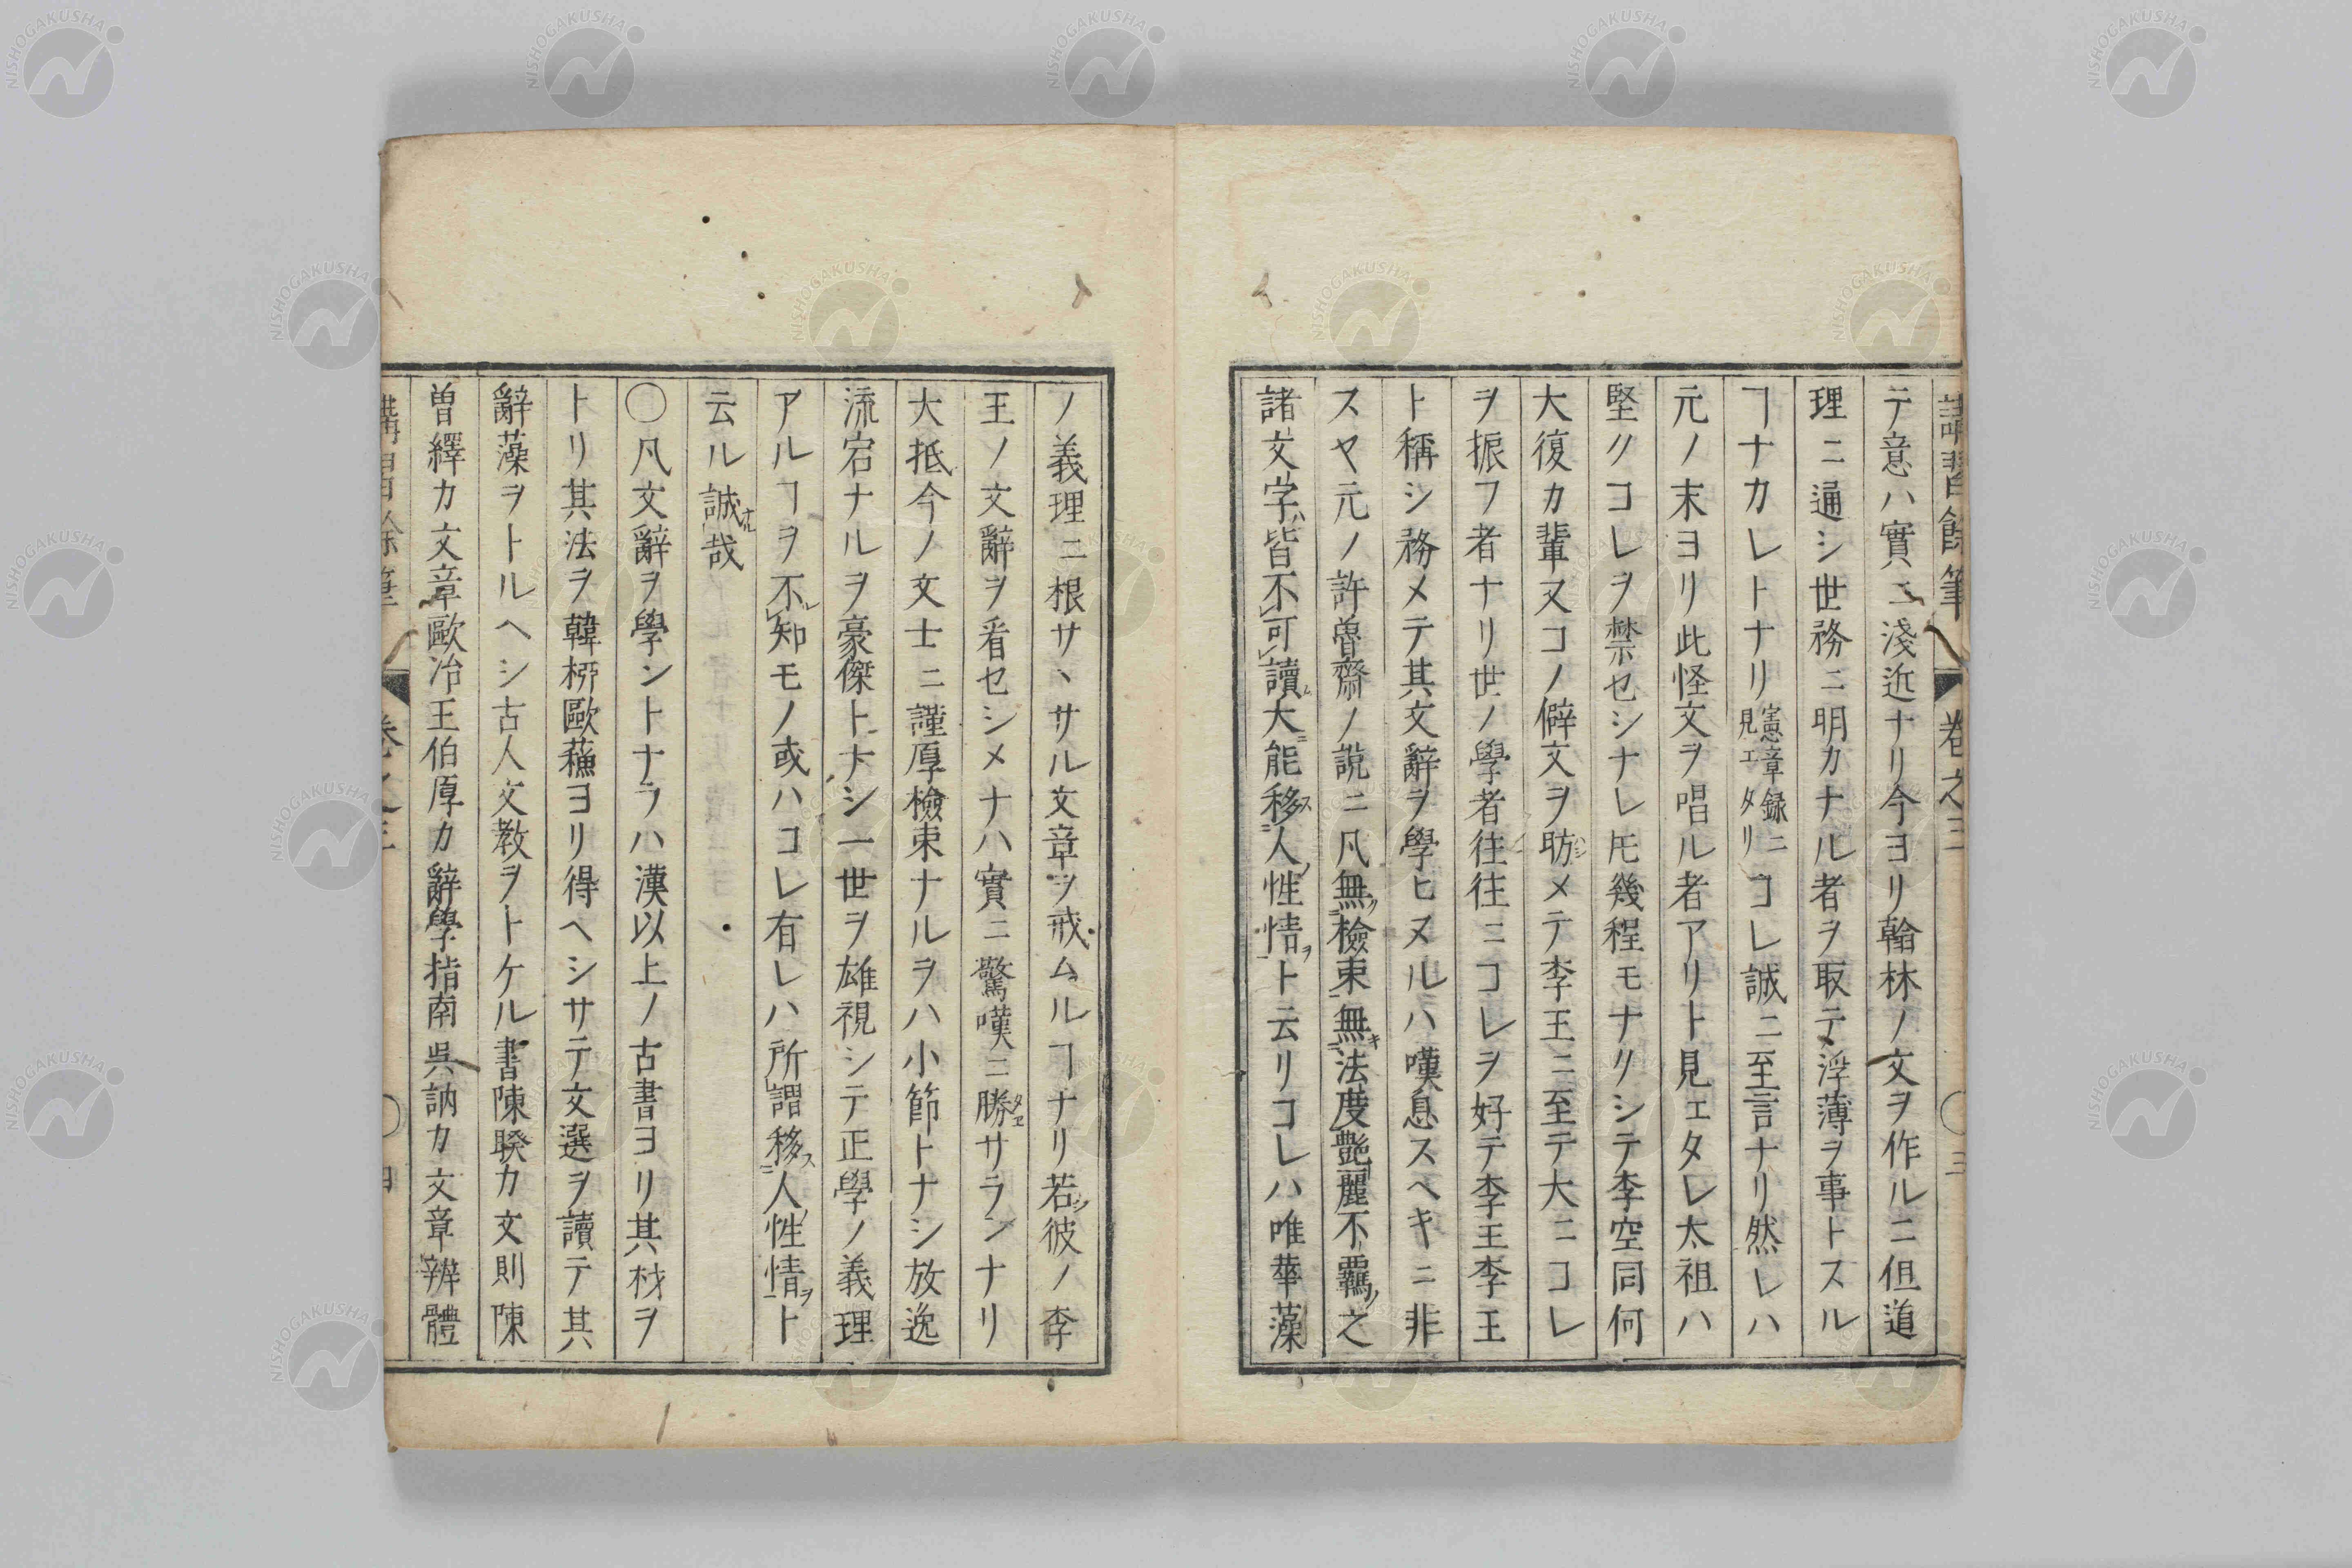 講習餘筆 卷之三 〇三
テ意ハ實ニ淺近ナリ今ヨリ翰林ノ文ヲ作ルニ但道
理ニ通シ世務ニ明カナル者ヲ取テ浮薄ヲ事トスル
ヿナカレトナリ憲章録ニ見エタリコレ誠ニ至言ナリ然レハ
元ノ末ヨリ此怪文ヲ唱ル者アリト見エタレ太祖ハ
堅クコレヲ禁セシナレ𪜈幾程モナクシテ李空同何
大復カ輩又コノ僻文ヲ助メテ李王ニ至テ大ニコレ
ヲ振フ者ナリ世ノ學者往往ニコレヲ好テ李王李王
ト稱シ務メテ其文辭ヲ學ヒヌルハ嘆息スヘキニ非
スヤ元ノ許魯齋ノ說ニ凡無檢束無法度艶麗不羈之
諸文字皆不可讀大能移人性情ト云リコレハ唯華藻
ノ義理ニ根サヽサル文章ヲ戒ムルヿナリ若彼ノ李
王ノ文辭ヲ看セシメナハ實ニ驚嘆ニ勝サランナリ
大抵今ノ文士ニ謹厚檢束ナルヲハ小節トナシ放逸
流宕ナルヲ豪傑トナシ一世ヲ雄視シテ正學ノ義理
アルヿヲ不知モノ或ハコレ有レハ所謂移人性情ト
云ル誠哉
〇凡文辭ヲ學ントナラハ漢以上ノ古書ヨリ其材ヲ
トリ其法ヲ韓柳歐蘇ヨリ得ヘシサテ文選ヲ讀テ其
辭藻ヲトルヘシ古人文教ヲトケル書陳騤カ文則陳
曽繹カ文章歐冶王伯厚カ辭學指南吳訥カ文章辨體
講習餘筆 卷之三 〇四